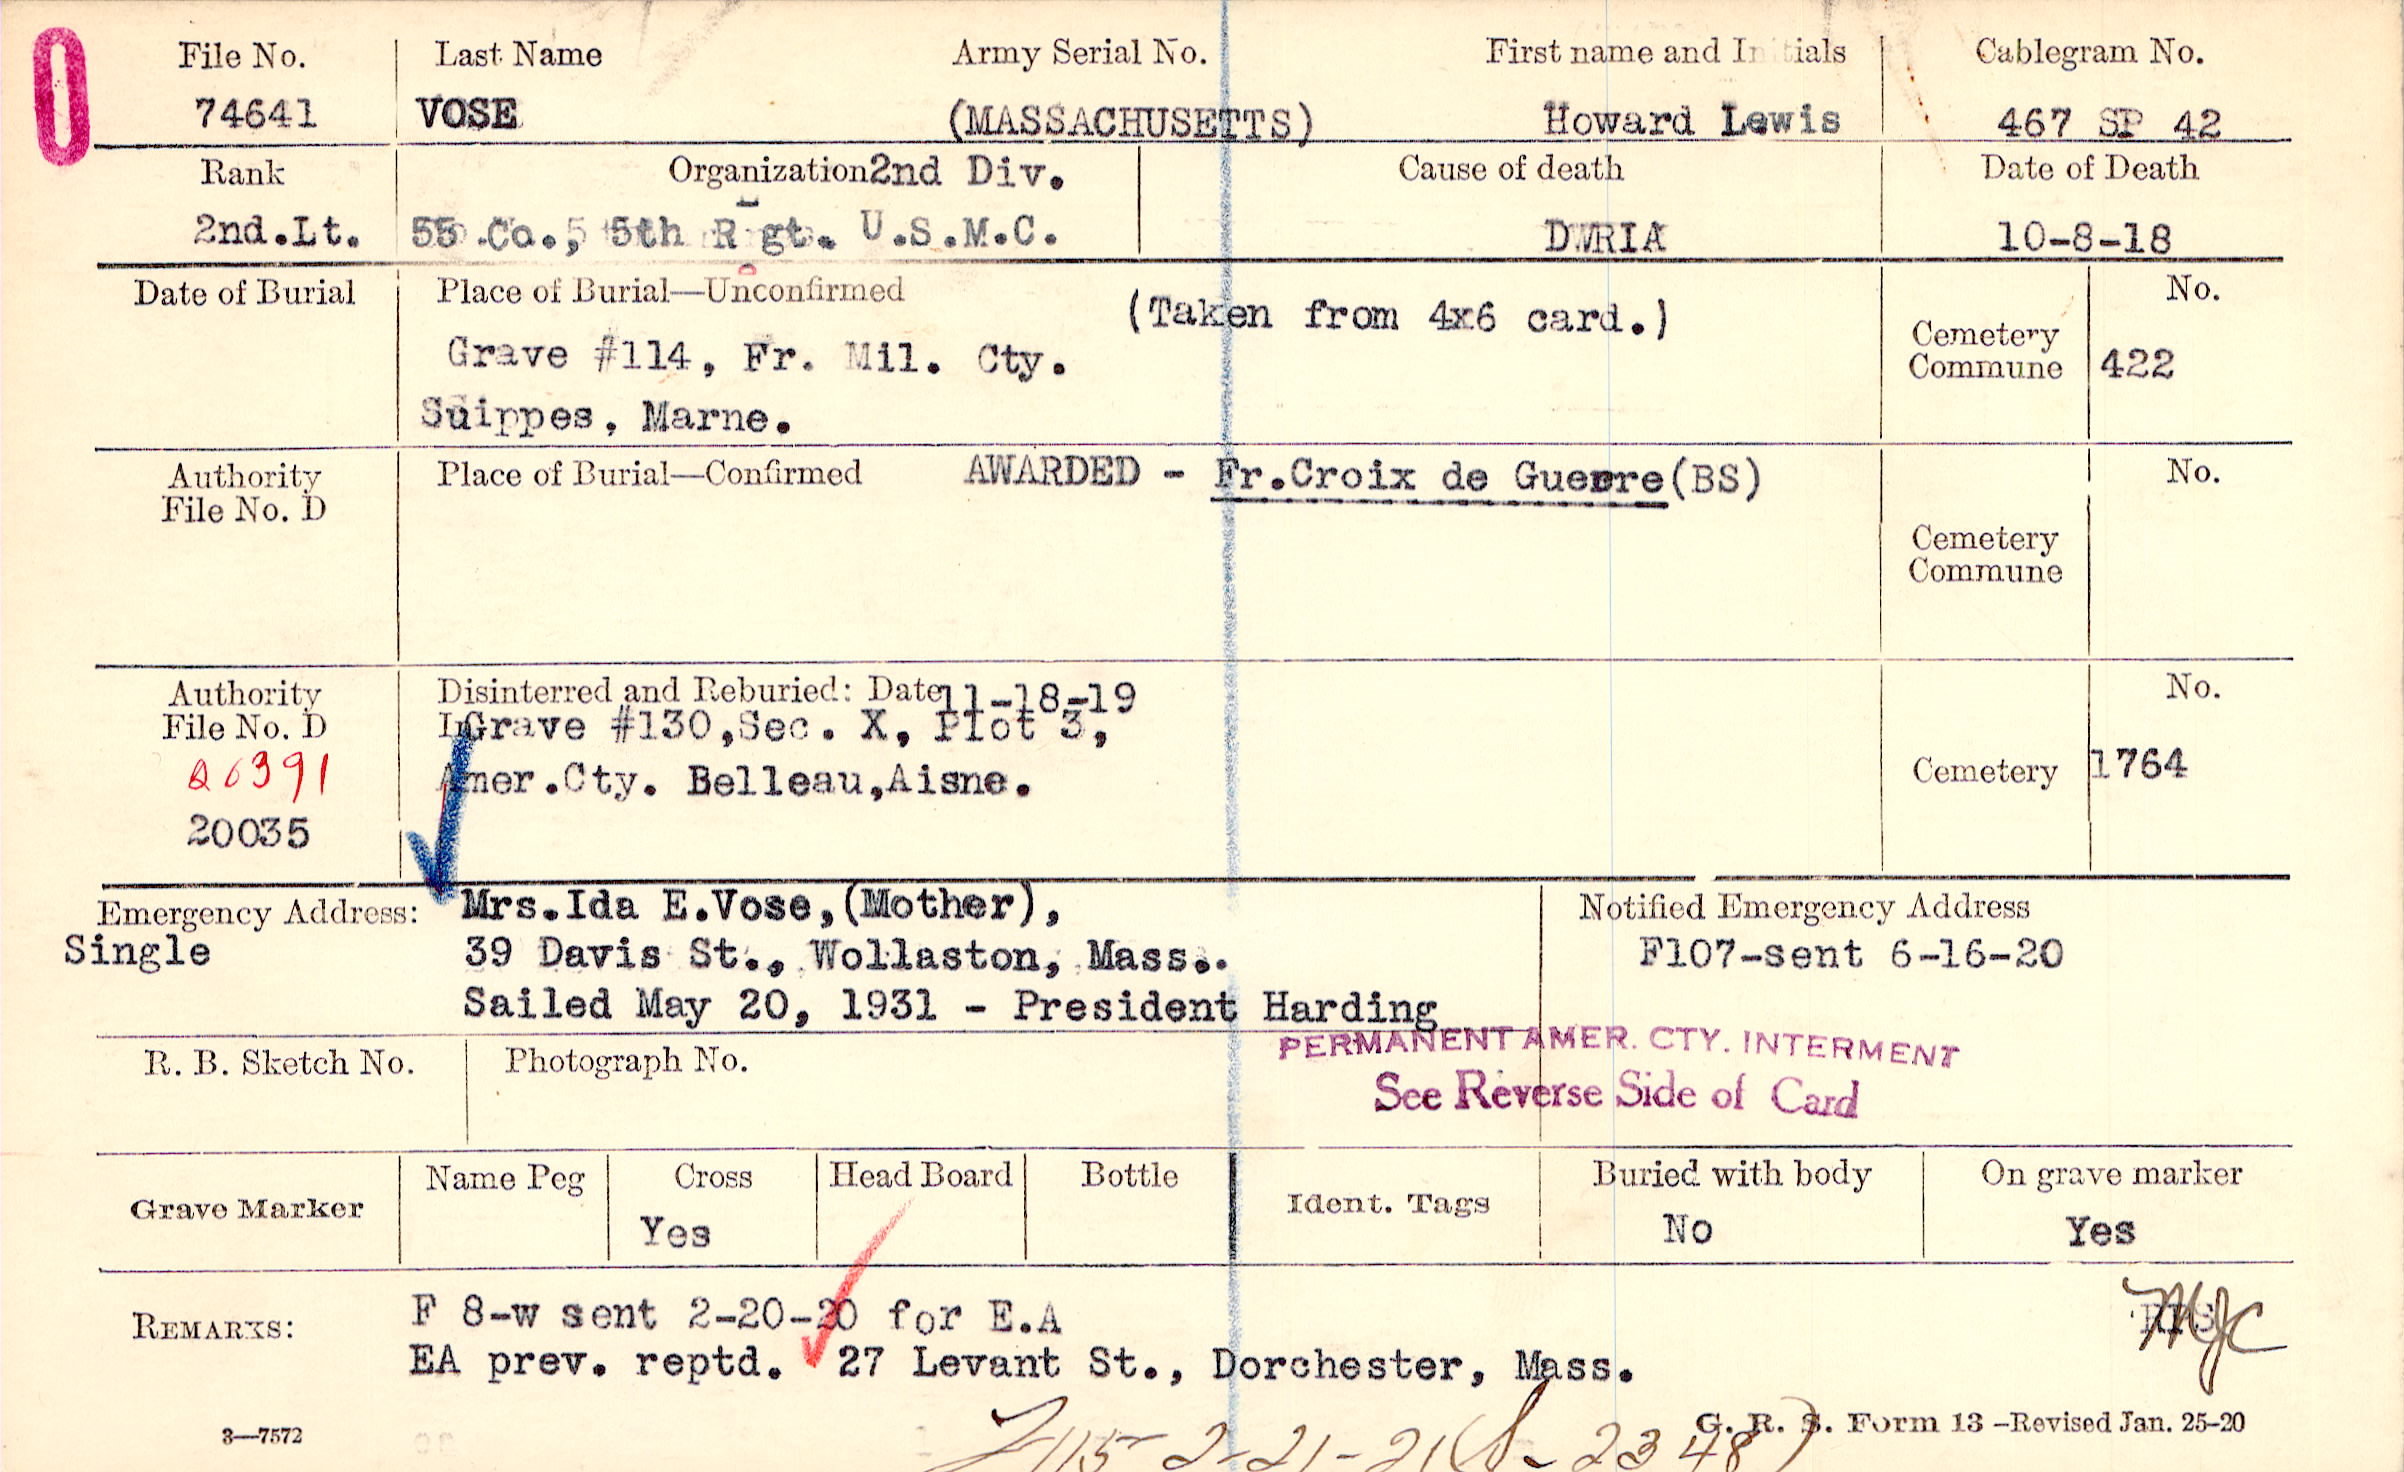 File No. Last Name Army Serial No. First name and Initials Cablegram No.
74641 VOSE (MASSACHUSETTS) Howard Lewis 467 SP 42
Rank Organization 2nd Div. Cause of death Date of Death
2nd.Lt. 55 Co., 5th R gt. U.S.M.C. DWRIA 10-8-18
Date of Burial Place of Burial—Unconfirmed No.
(Taken from 4x6 card.)
Grave #114, Fr. Mil. Cty. Cemetery
Commune 422
Suippes, Marne.
Authority Place of Burial—Confirmed AWARDED - Fr.Croix de Guerre(BS) No.
File No. D
Cemetery
Commune
Authority Disinterred and Reburied: Date 11-18-19 No.
File No. D In Grave #130,Sec. X, Plot 3,
26391 Amer.Cty. Belleau,Aisne. Cemetery 1764
20035
Emergency Address: Mrs.Ida E.Vose,(Mother), Notified Emergency Address
Single 39 Davis St., Wollaston, Mass.. F107-sent 6-16-20
Sailed May 20, 1931 - President Harding
PERMANENT AMER. CTY. INTERMENT
R. B. Sketch No. Photograph No.
See Reverse Side of Card
Grave Marker Name Peg Cross Head Board Bottle Ident. Tags Buried with body On grave marker
Yes No Yes
REMARKS: F 8-w sent 2-20-20 for E.A
EA prev. reptd. 27 Levant St., Dorchester, Mass.
MJC
3—7572 G. R. S. Form 13 -Revised Jan. 25-20
2-21-21 (S-2348)